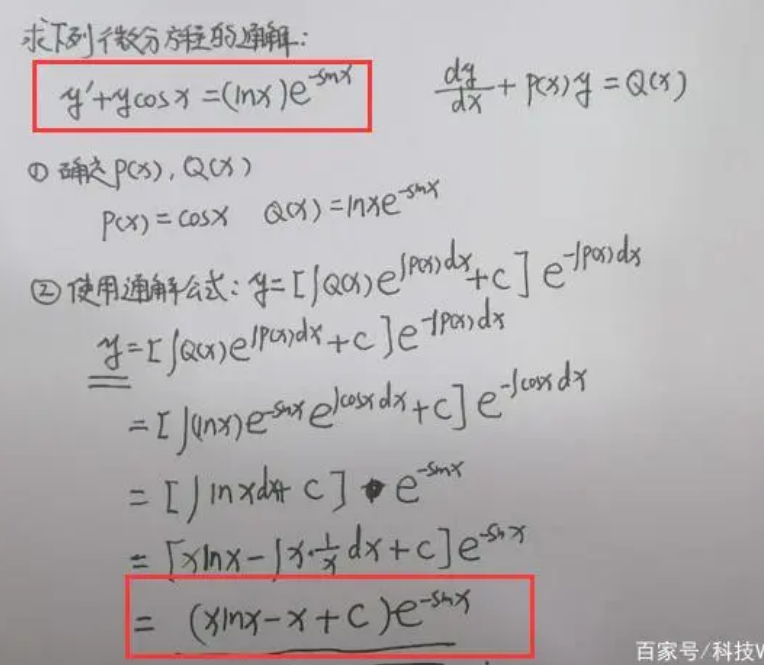 求下列微分方程的通解:
y'+ycosx=(lnx)e^{-sinx}
dy/dx + P(x)y = Q(x)
① 确定P(x), Q(x)
P(x)=cosx Q(x)=lnxe^{-sinx}
② 使用通解公式: y=[∫Q(x)e^{∫P(x)dx}+C]e^{-∫P(x)dx}
y=[∫Q(x)e^{∫P(x)dx}+C]e^{-∫P(x)dx}
=[∫(lnx)e^{-sinx}e^{∫cosxdx}+C]e^{-∫cosxdx}
=[∫lnxdx+C]·e^{-sinx}
=[xlnx-∫x·1/x dx+C]e^{-sinx}
=(xlnx-x+C)e^{-sinx}
百家号/科技